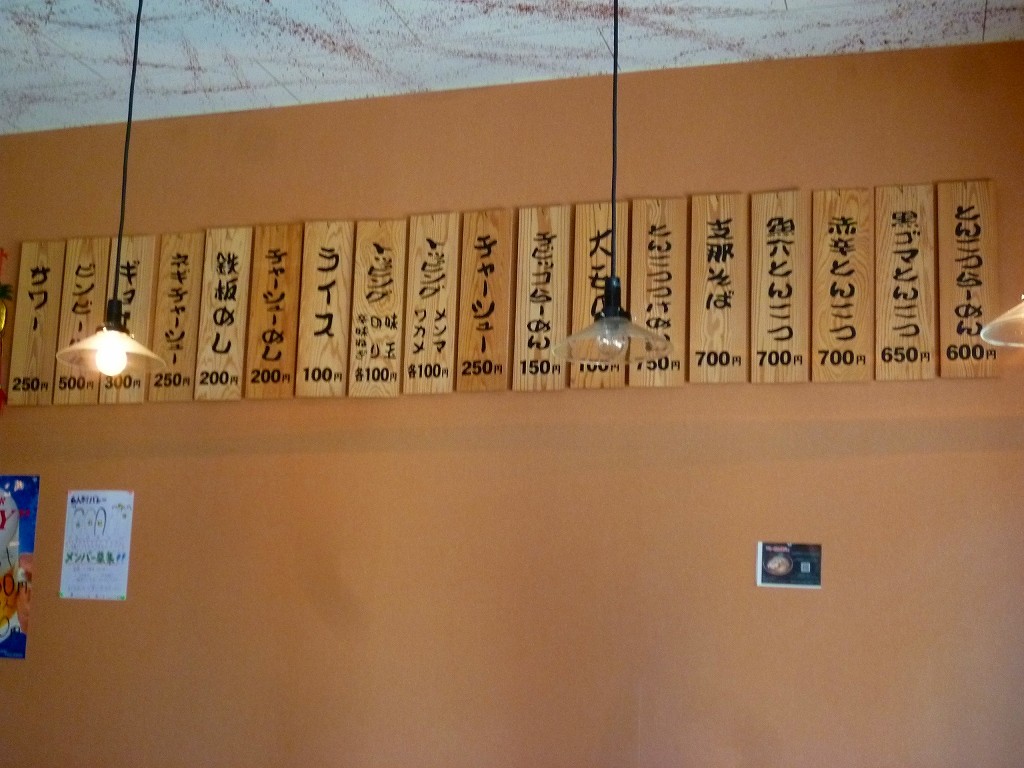 とんこつらーめん
600円
黒ゴマとんこつ
650円
赤辛とんこつ
700円
とんこつ
700円
支那そば
700円
とんこつつけめん
750円
チビッコらーめん
150円
チャーシュー
250円
トッピング
メンマ
ワカメ
各100円
トッピング
味玉
のり
辛味ねぎ
各100円
ライス
100円
チャーシューめし
200円
鉄板めし
200円
ネギチャーシュー
250円
300円
500円
サワー
250円
メンバー募集!!